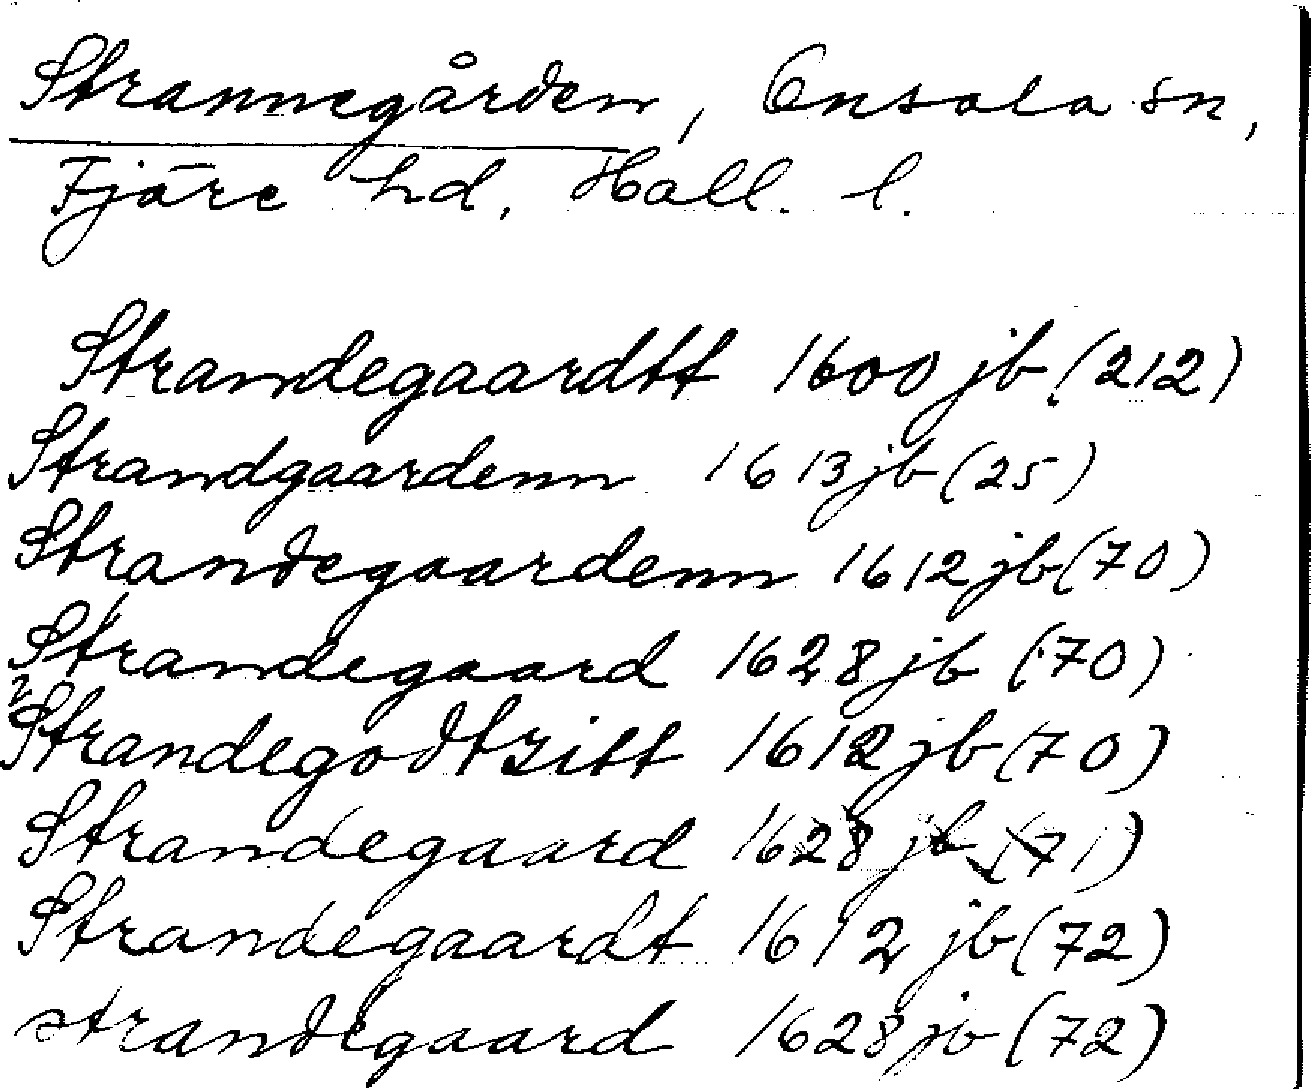 Strannegården, Onsala sn,
Fjäre hd, Hall. l.
Strandegaardtt 1600 jb (212)
Strandgaardenn 1613 jb (25)
Strandegaardenn 1612 jb (70)
Strandegaard 1628 jb (70)
1612 jb (70)
Strandegaard 1628 jb (71)
Strandegaardt 1612 jb (72)
strandegaard 1628 jb (72)